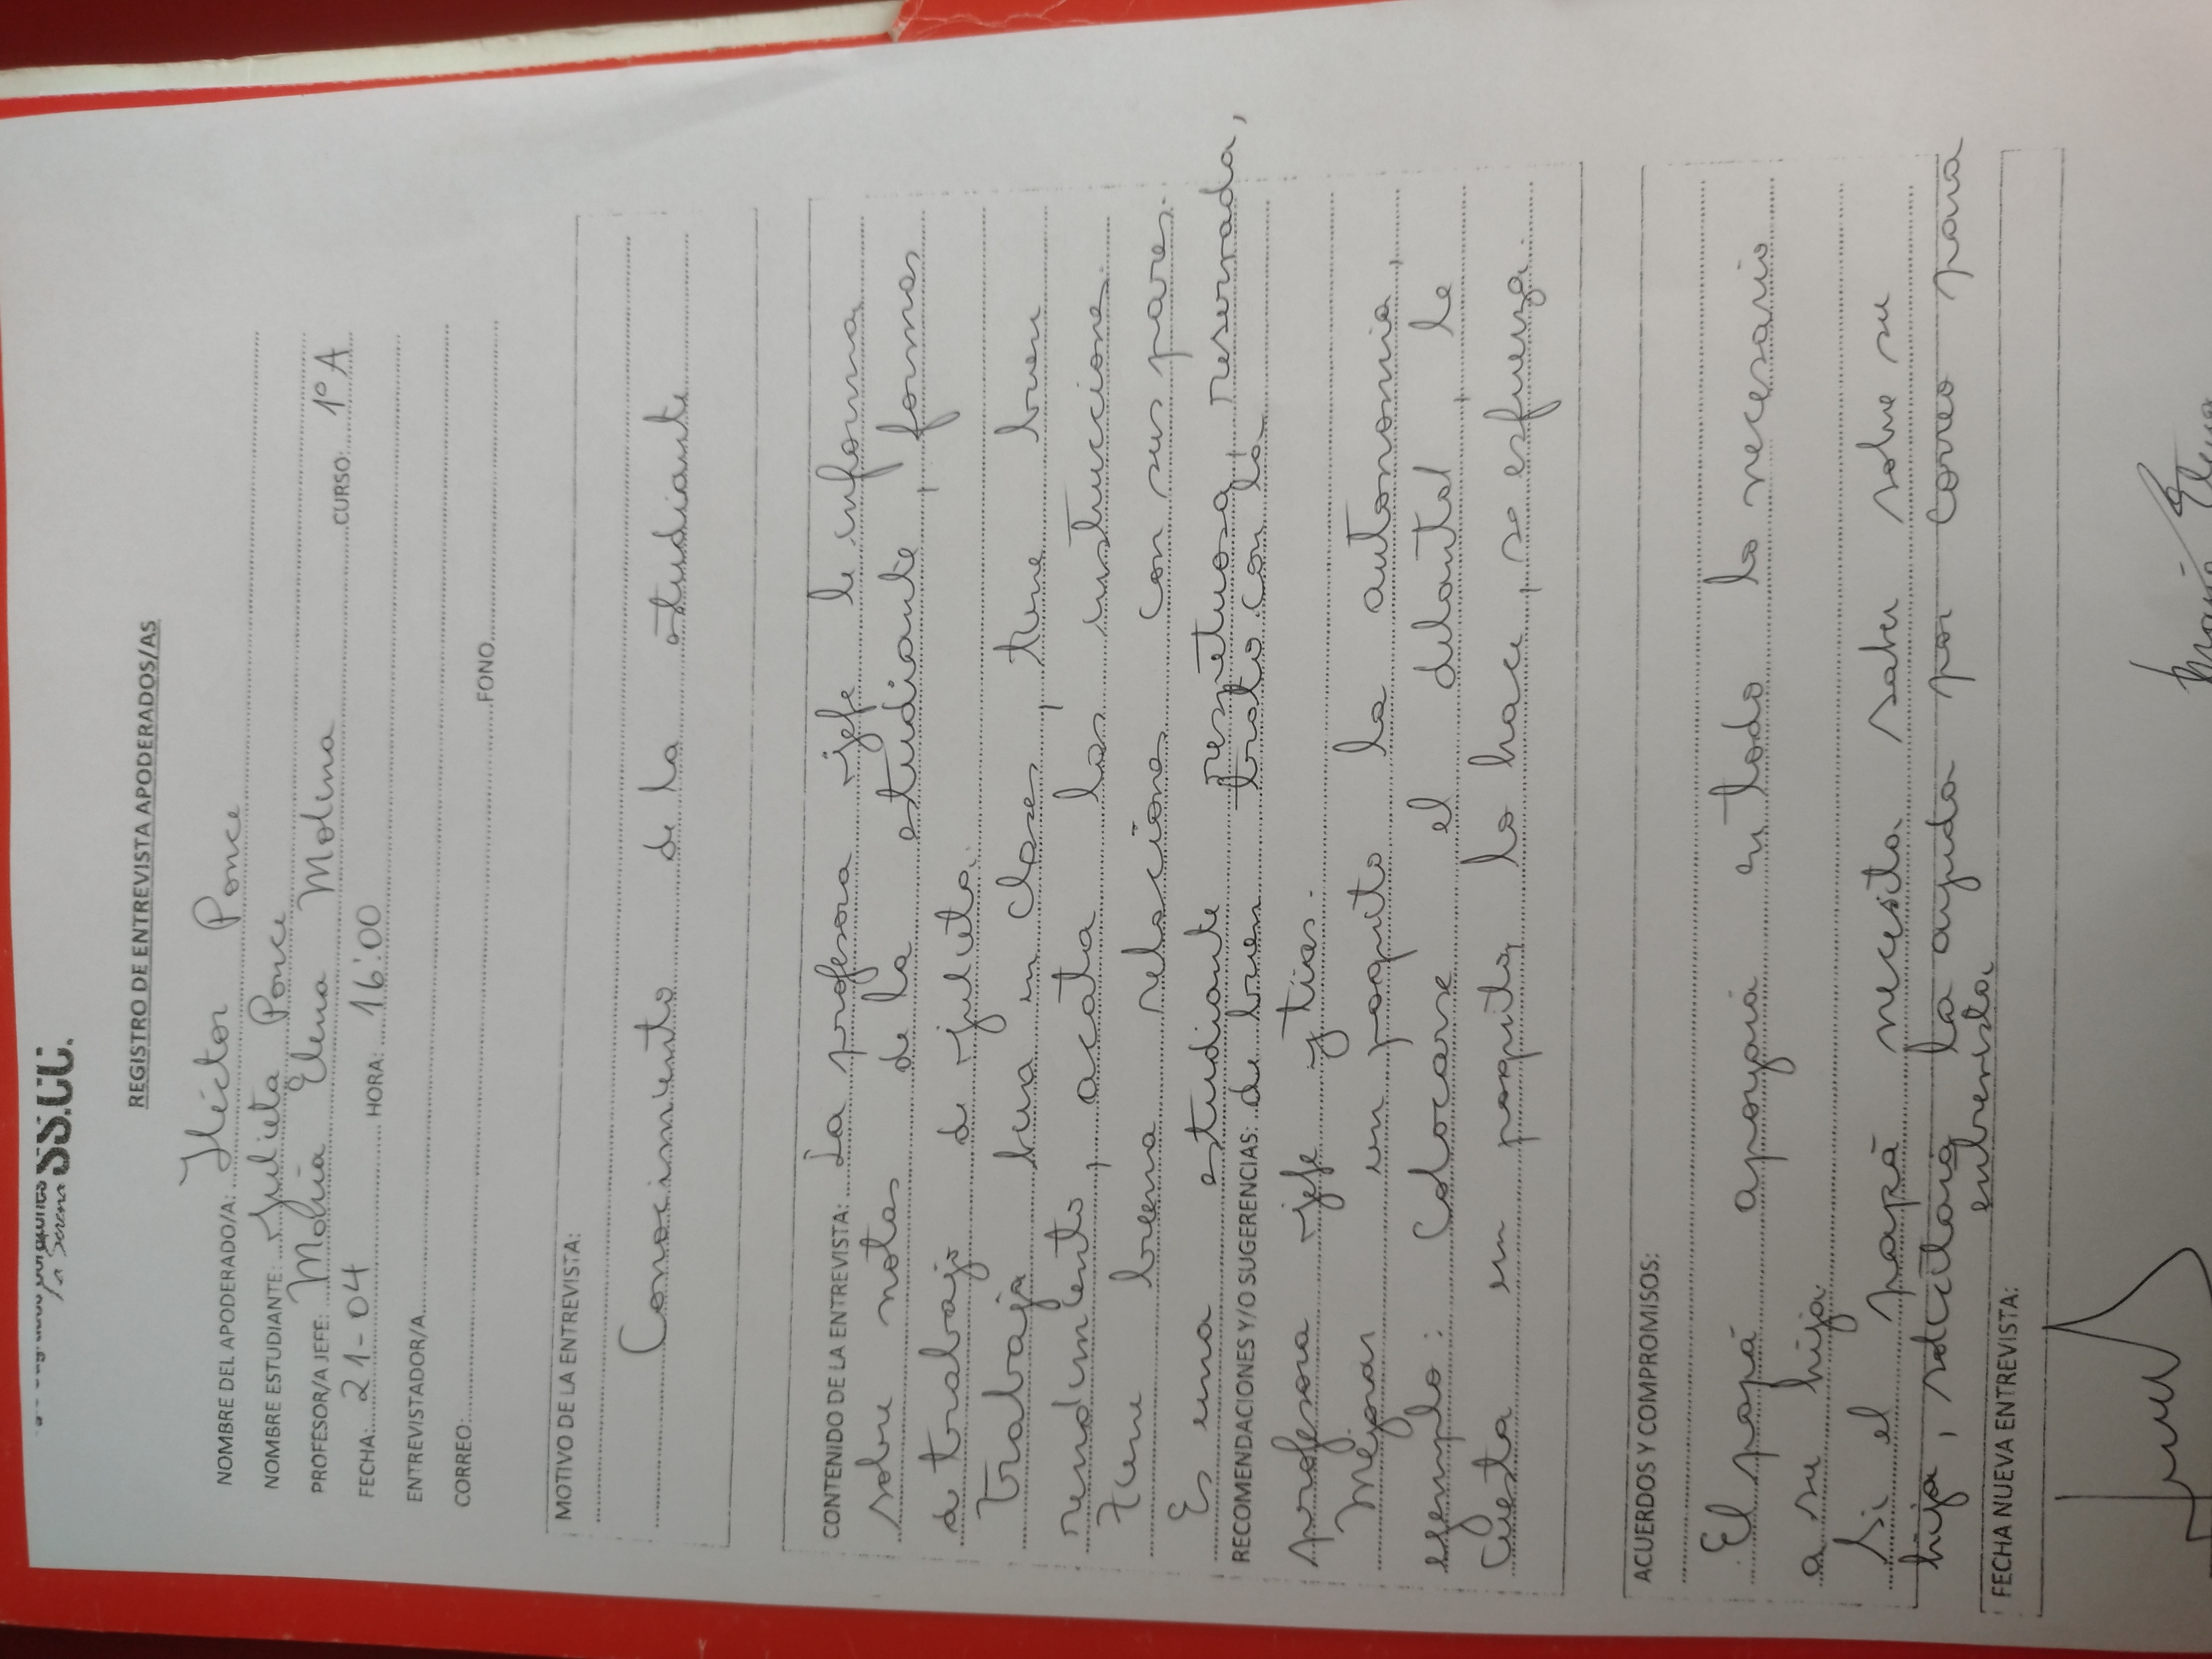 SS.CC.
La Serena
REGISTRO DE ENTREVISTA APODERADOS/AS
NOMBRE DEL APODERADO/A: Héctor Ponce
NOMBRE ESTUDIANTE: Julieta Ponce
PROFESOR/A JEFE: María Elena Molina CURSO: 1º A
FECHA: 21-04 HORA: 16:00
ENTREVISTADOR/A
CORREO: FONO
MOTIVO DE LA ENTREVISTA:
Conocimiento de la estudiante
CONTENIDO DE LA ENTREVISTA: La profesora jefe le informa
sobre notas de la estudiante, formas
de trabajo de julieta.
Trabaja bien en clases, tiene buen
rendimiento, acata las instrucciones.
Tiene buena relaciones con sus pares.
Es una estudiante respetuosa, reservada,
RECOMENDACIONES Y/O SUGERENCIAS: de buen trato con la
profesora jefe y tias.
Mejorar un poquito la autonomia,
ejemplo: Colocarse el delantal, le
cuesta un poquito, lo hace, se esfuerza.
ACUERDOS Y COMPROMISOS:
El papá apoyaria en todo lo necesario
a su hija.
Si el papá necesita saber sobre su
hija, solicitara la ayuda por correo para
entrevista.
FECHA NUEVA ENTREVISTA: